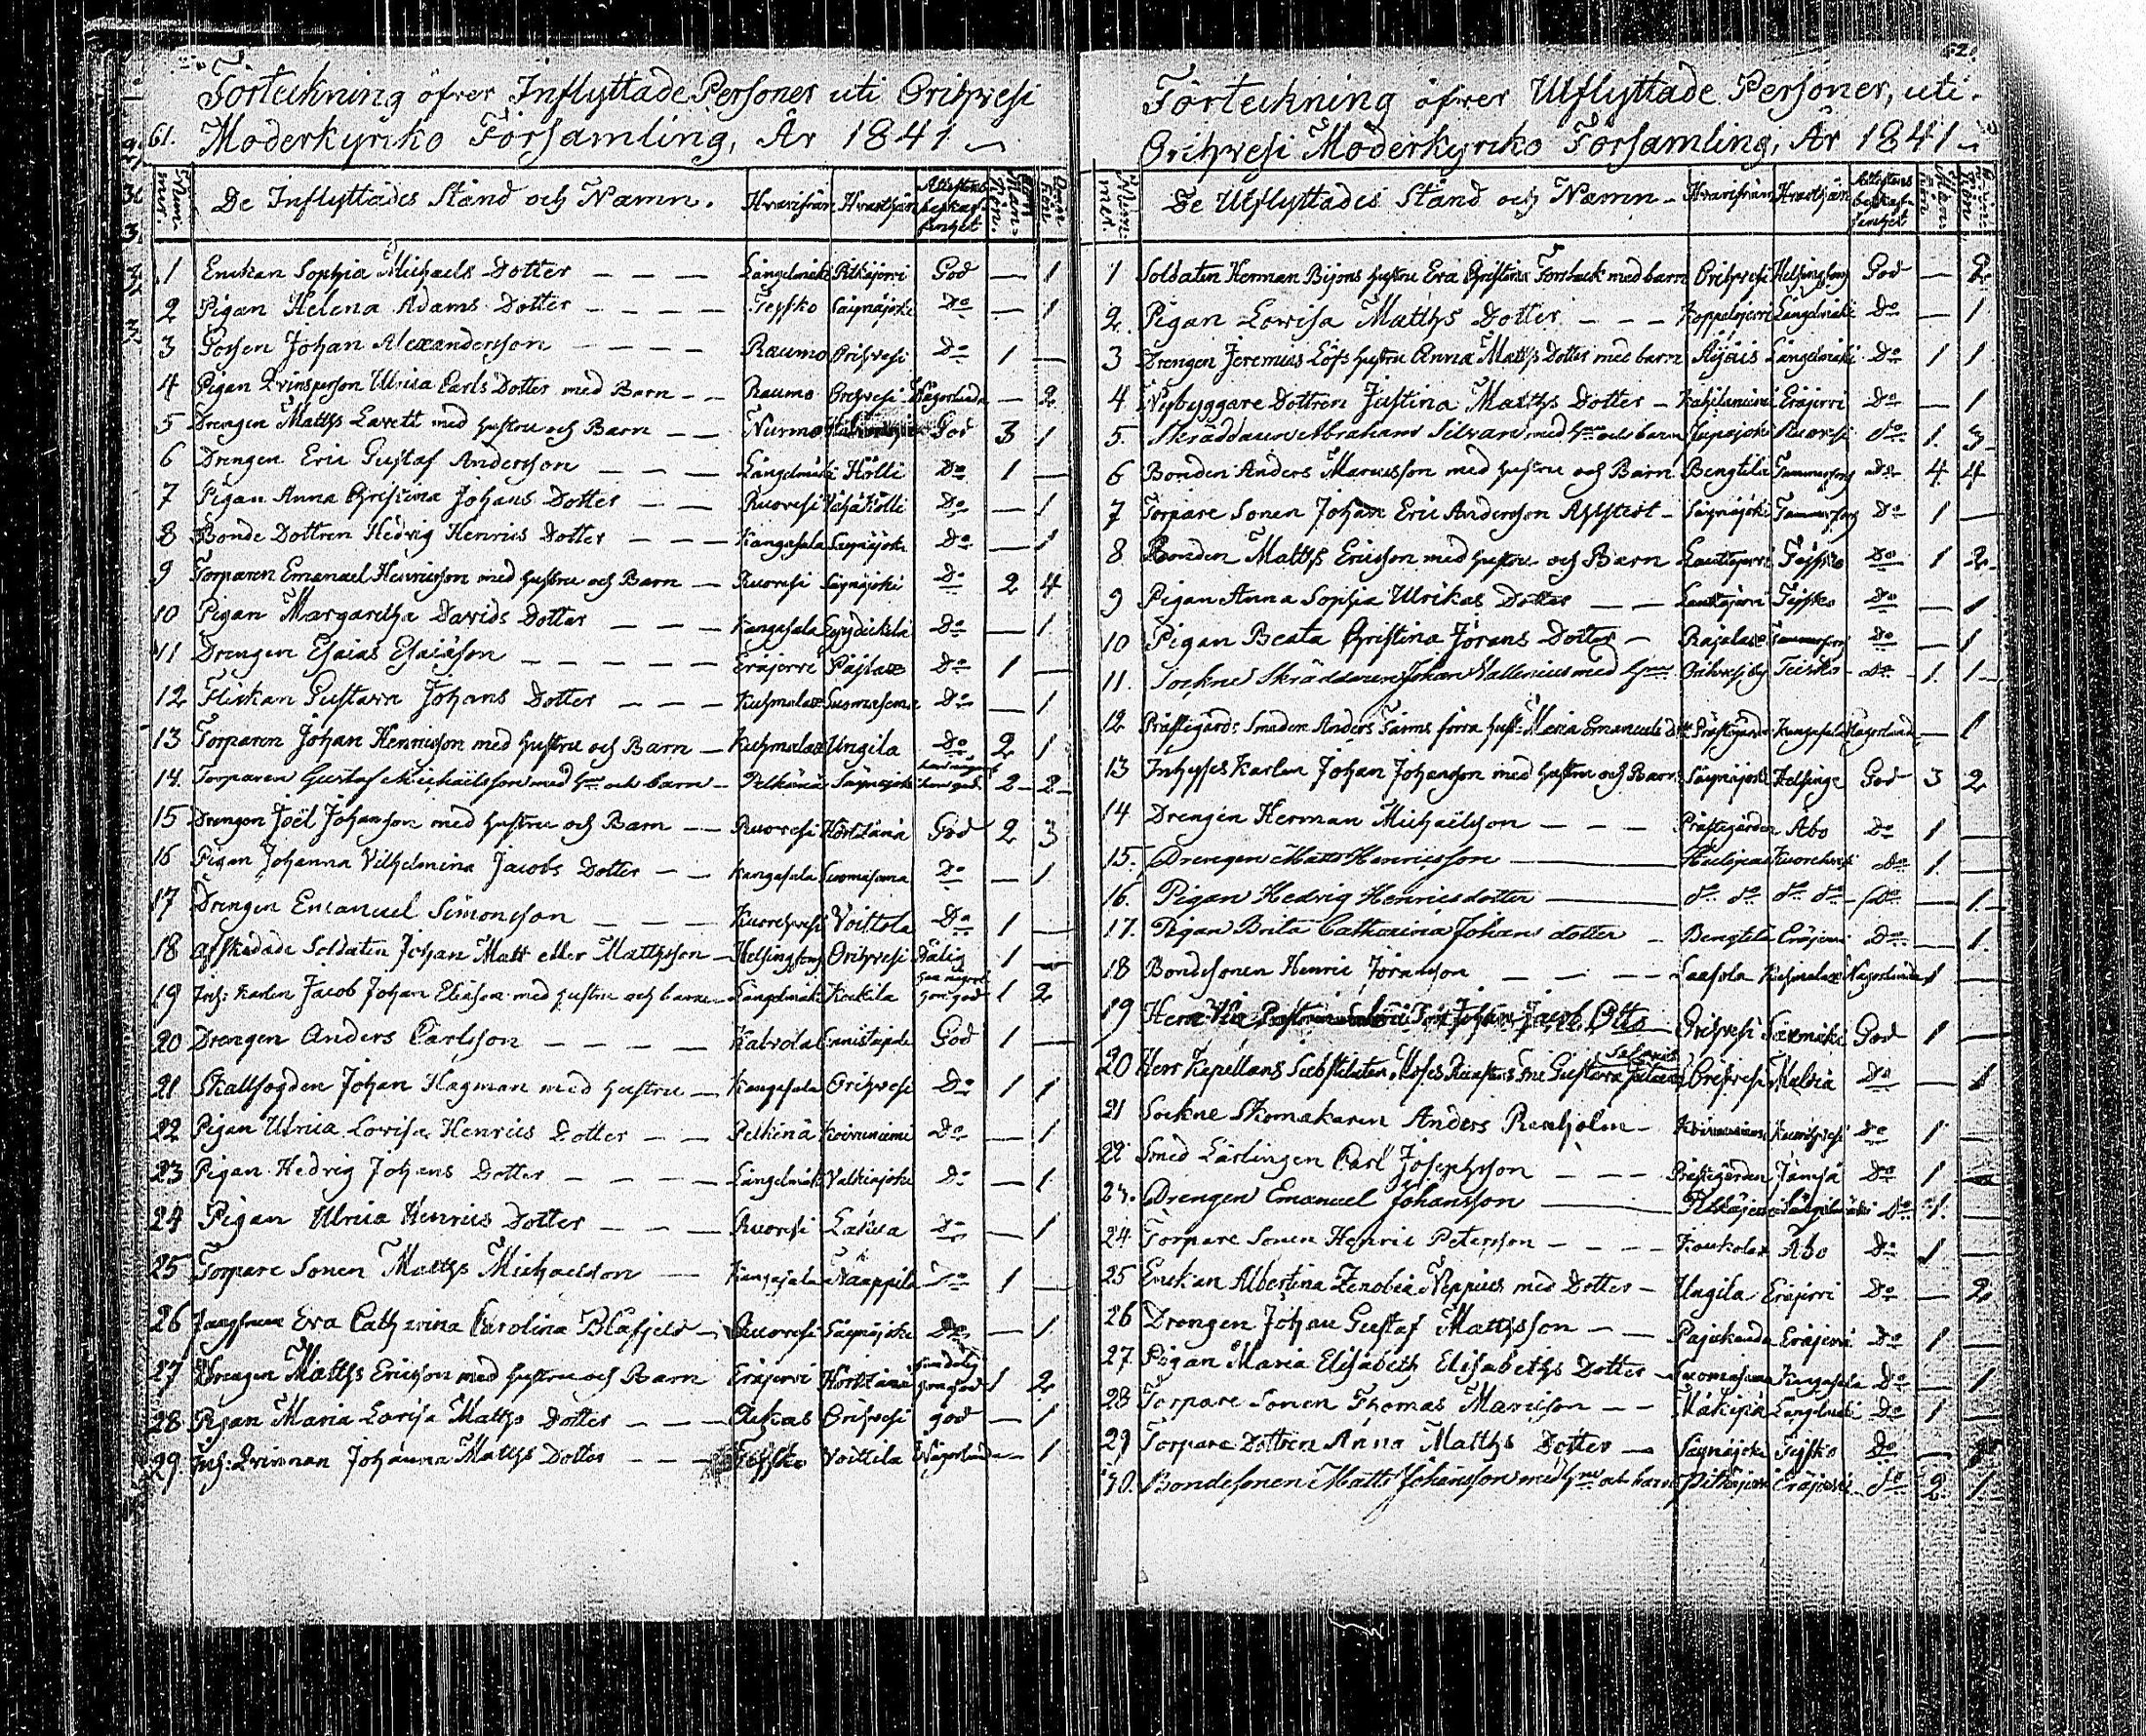 Förteckning öfver Inflyttade Personer uti Orihvesi
61. Moderkyrko Församling, År 1841
Num̄mer. De Inflyttades Stånd och Namn. Hvarifrån Hvarthän Attestens beskaffenhet Man-kön. Qvin-kön
1 Enckan Sophia Michaels Dotter — — — Längelmäki Pitkäjervi God — 1
2 Pigan Helena Adams Dotter — — — — Teisko Säynäjoki Do — 1
3 Gossen Johan Alexandersson — — — — Raumo Orihvesi Do 1 —
4 Pigan Qvinsperson Ulrica Carls Dotter med Barn — — Raumo Orihvesi Någorlunda — 2
5 Drengen Matths Lavett med hustru och Barn — — Nurmo God 3 1
6 Drengen Eric Gustaf Andersson — — — Längelmäki Hölli Do 1 —
7 Pigan Anna Christina Johans Dotter — — Ruovesi Do — 1
8 Bonde Dottren Hedvig Henrics Dotter — — — Kangasala Säynäjoki Do — 1
9 Torparen Emanuel Henricsson med hustru och Barn — Ruovesi Säynäjoki Do 2 4
10 Pigan Margaretha Davids Dotter — — — Kangasala Do — 1
11 Drengen Esaias Esaiasson — — — — — Eräjervi Päjlax Do 1 —
12 Flickan Gustava Johans Dotter — — — Kuhmalax Suomasema Do — 1
13 Torparen Johan Henricsson med hustru och Barn — Kuhmalax Ungila Do 2 1
14. Torparen Gustaf Michaelsson med hru och barn — Pelkänä Säynäjoki hon god 2 2
15 Drengen Joël Johansson med hustru och Barn — — Ruovesi Hörtänä God 2 3
16 Pigan Johanna Vilhelmina Jacobs Dotter — — Kangasala Suomasema Do — 1
17 Drengen Emanuel Simonsson — — — Kuorehvesi Voittola Do 1 —
18 Afskedade Soldaten Johan Matt eller Mathsson — Helsingfors Orihvesi Dålig 1 —
19 Inh: Karlen Jacob Johan Eliasson med hustru och barn — Längelmäki Kockila hon god 1 2
20 Drengen Anders Carlsson — — — — Kalvola God 1 —
21 Skallfogden Johan Hagman med hustru — Kangasala Orihvesi Do 1 1
22 Pigan Ulrica Lovisa Henrics Dotter — — Pelkänä Koivuniemi Do — 1
23 Pigan Hedvig Johans Dotter — — — — Längelmäki Valkiajoki Do — 1
24 Pigan Ulrica Henrics Dotter — — — Ruovesi Lakva Do — 1
25 Torpare Sonen Matths Michaelsson — Kangasala Naappila Do 1 —
26 Jungfrun Eva Catharina Carolina Blåfjeld — Ruovesi Säynäjoki Do — 1
27 Drengen Matths Ericsson med hustru och Barn Eräjervi Hörtänä han dålig hon god 1 2
28 Pigan Maria Lovisa Matths Dotter — — — Ackas Orihvesi god — 1
29 Inh: Qvinnan Johanna Matths Dotter — — — Teisko Voitila Någorlunda — 1
62.
Förteckning öfver Utflyttade Personer, uti
Orihvesi Moderkyrko Församling, År 1841
Num̄mer De Utflyttades Stånd och Namn — Hvarifrån Hvarthän Attestens beskaffenhet Man kön Qvin kön
1 Soldaten Herman Björns hustru Eva Christina Forsbeck med barn Orihvesi Helsingfors God — 2
2. Pigan Lovisa Matths Dotter — — — Koppelojervi Längelmäki Do — 1
3 Drengen Jeremias Löfs hustru Anna Matths Dotter med barn Äijäis Längelmäki Do 1 1
4 Nybyggare Dottren Justina Matths Dotter — Eräjervi Do — 1
5. Skräddaren Abraham Silvan med hru och barn Ruovesi do 1. 3
6 Bonden Anders Marcusson med hustru och Barn Bengtila Tammerfors do 4 4
7 Torpare Sonen Johan Eric Andersson Ahlstedt — Säynäjoki Tammerfors Do 1 —
8 Bonden Matths Ericsson med hustru och Barn Lauttajervi Teisko Do 1 2
9 Pigan Anna Sophia Ulrikas Dotter — — Lauttajervi Teisko Do — 1
10 Pigan Beata Christina Jörans Dotter — Rajalax Tammerfors Do — 1
11. Sockne Skräddaren Johan Vallenius med hru Orihvesi by Teisko do 1. 1
12 Prästegårds Smeden Anders Fäims förra hust: Maria Emanuels dtr Prästegården Kangasala Någorlunda — 1
13 Inhyses Karlen Johan Johansson med hustru och Barn Säynäjoki Helsinge God 3 2
14 Drengen Herman Michaëlsson — — — Prästegården Åbo Do 1 —
15. Drengen Matts Henricsson Kuorehvesi do 1. —
16. Pigan Hedvig Henricsdotter do do do do do — 1.
17. Pigan Brita Catharina Johans dotter — Bengtila Eräjervi Do — 1.
18 Bondesonen Henric Jöransson — — — Laasola Kuhmalax Någorlunda 1 —
19 Herr Johan Jacob Otto Orihvesi Säxmäki God 1 —
20 Herr Kapellans Substituten Moses Gustava Orihvesi Do — 1
21 Sockne Skomakaren Anders Renholm — Koivuniemi Kuorehvesi Do 1 —
22 Smed Lärlingen Carl Josephsson — — — Prästegården Jämsä Do 1 —
23. Drengen Emanuel Johansson Pitkäjervi Längelmäki Do 1. —
24 Torpare Sonen Henric Petersson — — — Koukola Åbo Do 1 —
25 Enckan Albertina Zenobia Neppius med Dotter — Ungila Eräjervi Do — 2
26 Drengen Johan Gustaf Matthsson — — Pajukanda Eräjervi Do 1 —
27 Pigan Maria Elisabeth Elisabeths Dotter — Suomasema Kangasala Do — 1
28 Torpare Sonen Thomas Maricsson — — Mäkipä Längelmäki Do 1 —
29 Torpare Dottren Anna Matths Dotter — Säynäjoki Teisko Do — 1
30. Bondesonen Matts Johansson med hru och barn Pitkäjervi Eräjervi do 2 1